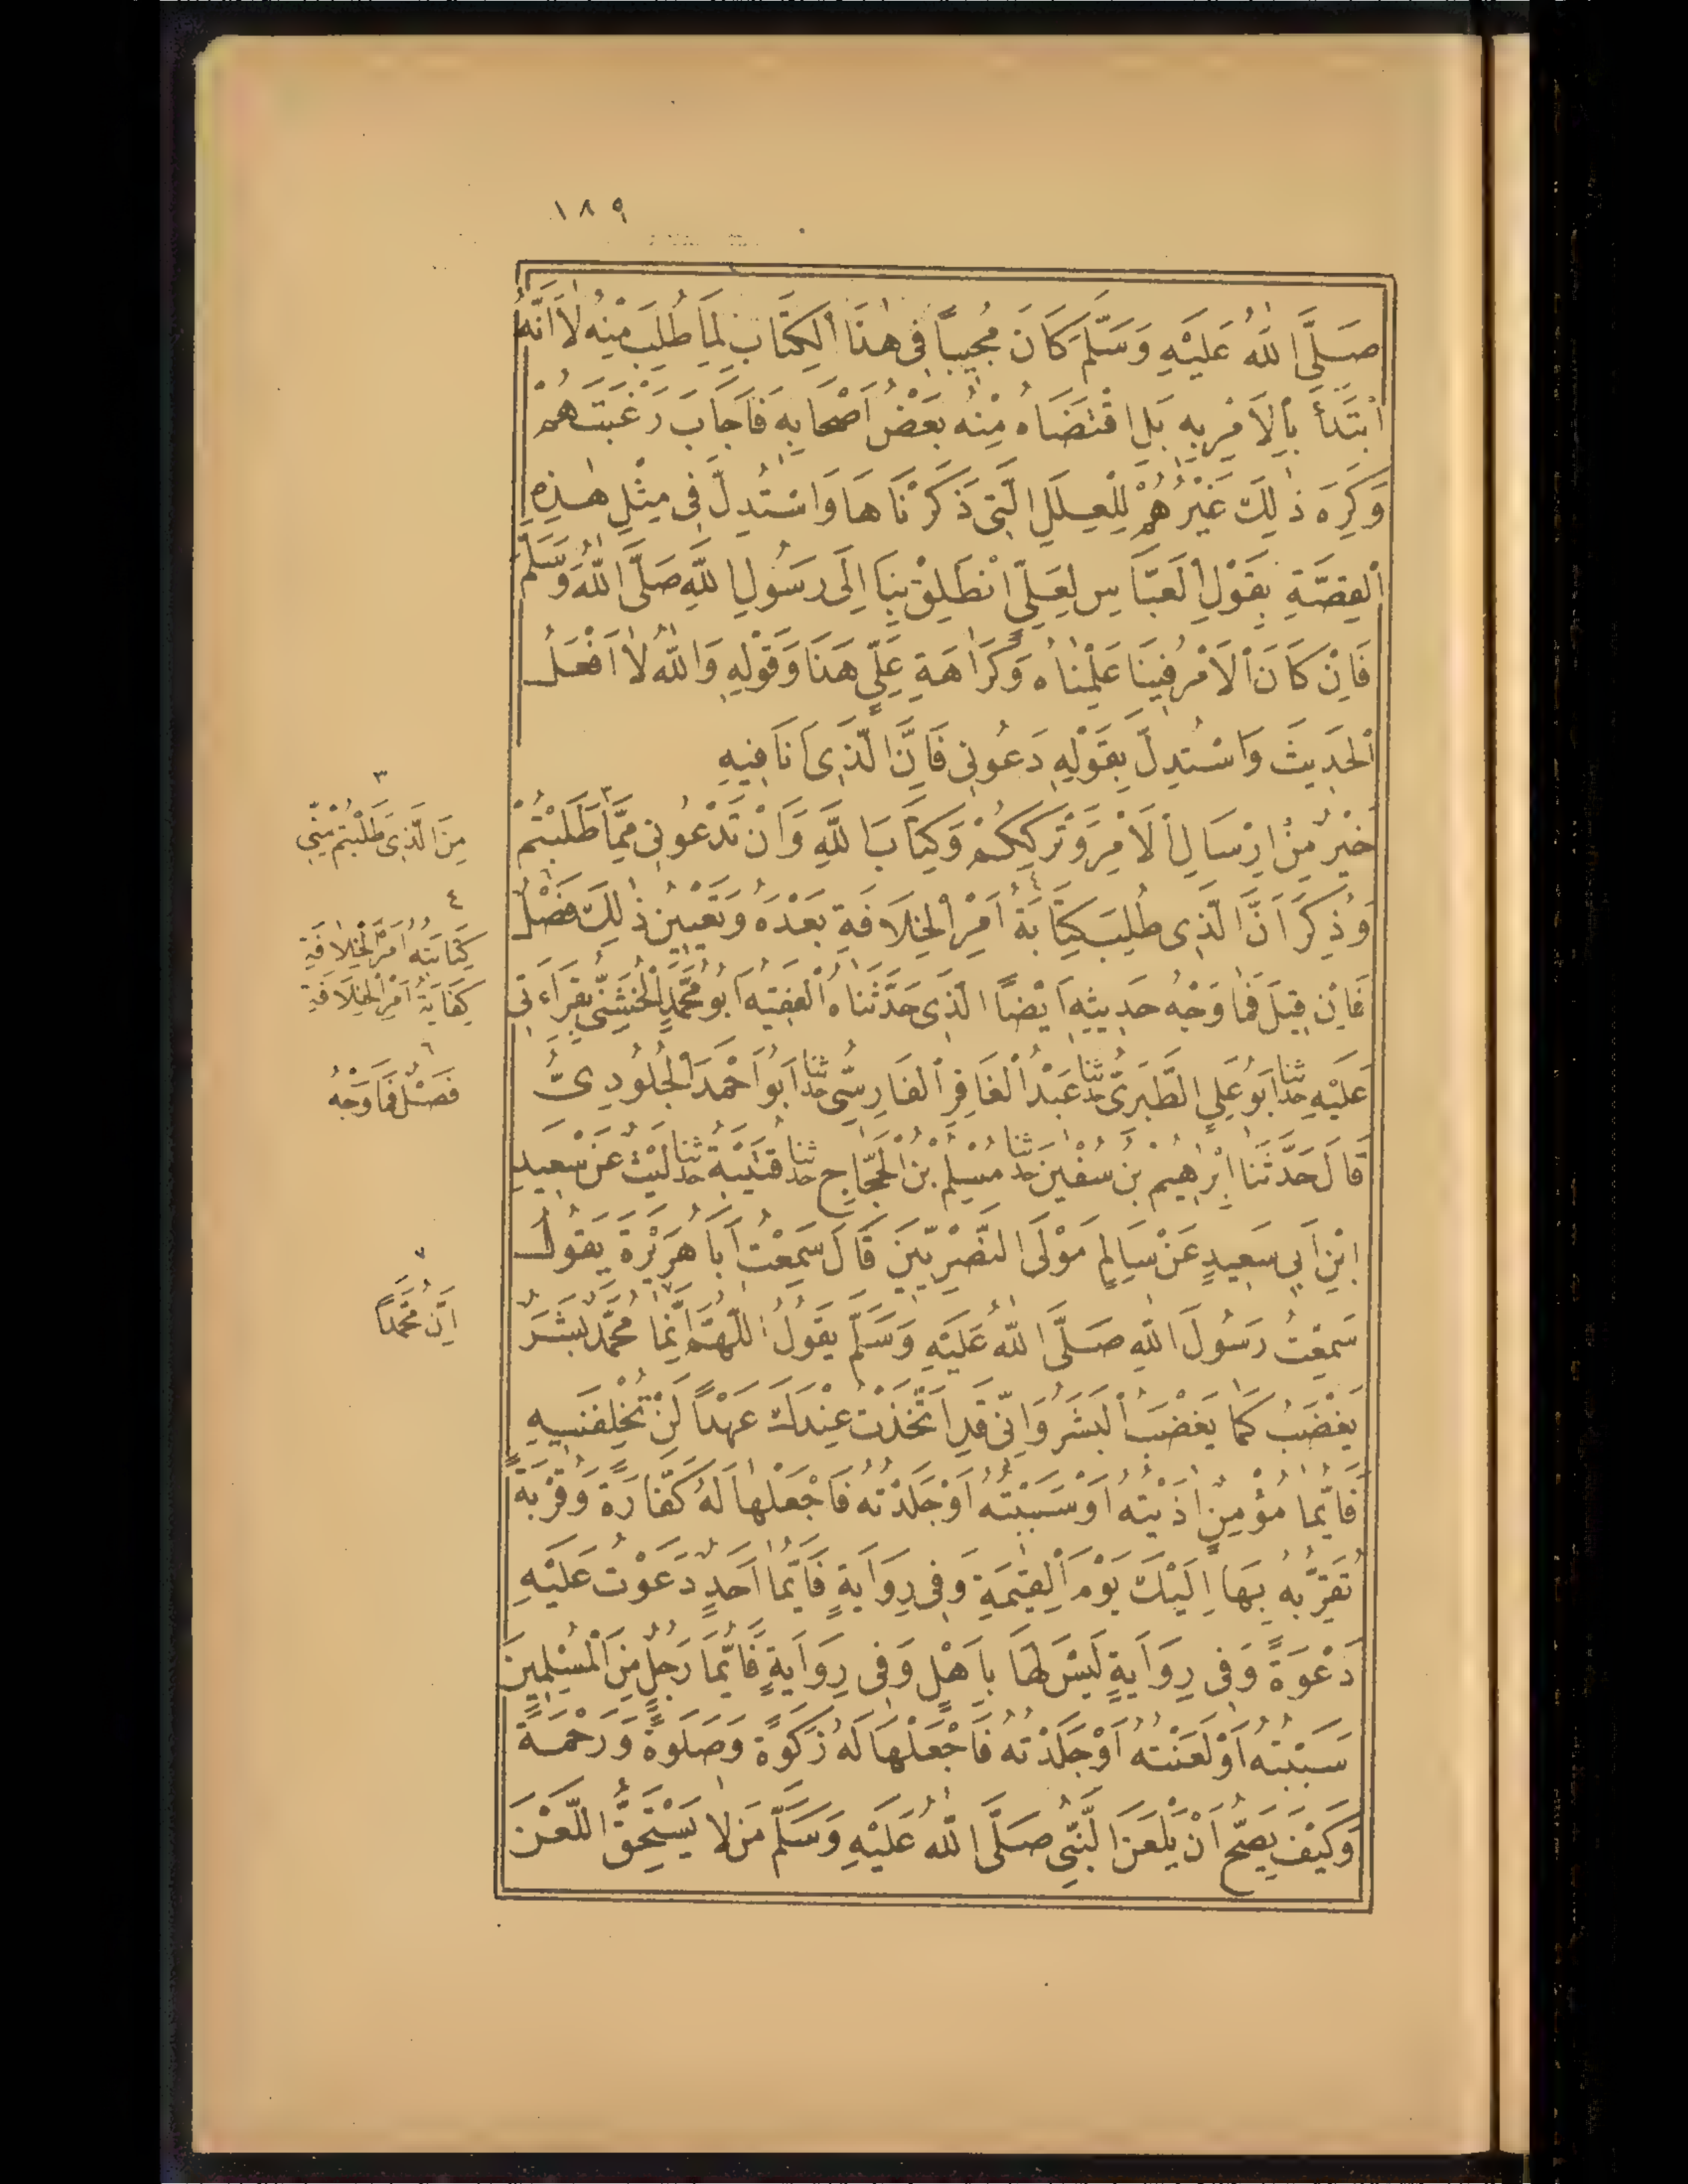 ١٨٩
صَلَّى اللهُ عَلَيْهِ وَسَلَّمَ كَانَ مُجِيباً فِى هٰذَا الْكِتَابِ لِمَا طُلِبَ مِنْهُ لَا اَنَّهُ
ابْتَدَأَ بِالْاَمْرِ بِهِ بَلِ اقْتَضَاهُ مِنْهُ بَعْضُ اَصْحَابِهِ فَاَجَابَ رَغْبَتَهُمْ
وَكَرِهَ ذٰلِكَ غَيْرُهُمْ لِلْعِلَلِ الَّتِى ذَكَرْنَاهَا وَاسْتُدِلَّ فِى مِثْلِ هٰذِهِ
الْقِصَّةِ بِقَوْلِ الْعَبَّاسِ لِعَلِىٍّ انْطَلِقْ بِنَا اِلَى رَسُولِ اللهِ صَلَّى اللهُ وَسَلَّمَ
فَاِنْ كَانَ الْاَمْرُ فِينَا عَلِمْنَاهُ وَكَرَاهَةِ عَلِىٍّ هَذَا وَقَوْلِهِ وَاللهِ لَا اَفْعَلُ
الْحَدِيثَ وَاسْتُدِلَّ بِقَوْلِهِ دَعُونِى فَاِنَّ الَّذِى اَنَا فِيهِ
خَيْرٌ مِنْ اِرْسَالِ الْاَمْرِ وَتَرْكِكُمْ وَكِتَابَ اللهِ وَاَنْ تَدْعُونِى مِمَّا ٣ طَلَبْتُمْ
وَذُكِرَ اَنَّ الَّذِى طُلِبَ كِتَابَةُ ٤ اَمْرِ الْخِلَافَةِ بَعْدَهُ وَتَعْيِينُ ذٰلِكَ فَصْلٌ ٦
فَاِنْ قِيلَ فَمَا وَجْهُ حَدِيثِهِ اَيْضاً الَّذِى حَدَّثَنَاهُ الْفَقِيهُ اَبُو مُحَمَّدٍ الْخُشَنِىُّ بِقِرَاءَتِى
عَلَيْهِ حدثنا اَبُو عَلِىٍ الطَّبَرِىُّ حدثنا عَبْدُ الْغَافِرِ الْفَارِسِىُّ حدثنا اَبُو اَحْمَدَ الْجُلُودِىُّ
قَالَ حَدَّثَنَا اِبْرٰهِيمُ بْنُ سُفْيٰنَ حدثنا مُسْلِمُ بْنُ الْحَجَّاجِ حدثنا قُتَيْبَةُ حدثنا لَيْثٌ عَنْ سَعِيدِ
ابْنِ اَبِى سَعِيدٍ عَنْ سَالِمٍ مَوْلَى النَّصْرِيِّينَ قَالَ سَمِعْتُ اَبَا هُرَيْرَةَ يَقُولُ
سَمِعْتُ رَسُولَ اللهِ صَلَّى اللهُ عَلَيْهِ وَسَلَّمَ يَقُولُ اللّٰهُمَّ اِنَّمَا ٧ مُحَمَّدٌ بَشَرٌ
يَغْضَبُ كَمَا يَغْضَبُ الْبَشَرُ وَاِنِّى قَدِ اتَّخَذْتُ عِنْدَكَ عَهْداً لَنْ تُخْلِفَنِيهِ
فَاَيُّمَا مُؤْمِنٍ اٰذَيْتُهُ اَوْ سَبَبْتُهُ اَوْ جَلَدْتُهُ فَاجْعَلْهَا لَهُ كَفَّارَةً وَقُرْبَةً
تُقَرِّبُهُ بِهَا اِلَيْكَ يَوْمَ الْقِيٰمَةِ وَفِى رِوَايَةٍ فَاَيُّمَا اَحَدٍ دَعَوْتُ عَلَيْهِ
دَعْوَةً وَفِى رِوَايَةٍ لَيْسَ لَهَا بِاَهْلٍ وَفِى رِوَايَةٍ فَاَيُّمَا رَجُلٍ مِنَ الْمُسْلِمِينَ
سَبَبْتُهُ اَوْ لَعَنْتُهُ اَوْ جَلَدْتُهُ فَاجْعَلْهَا لَهُ زَكٰوةً وَصَلٰوةً وَرَحْمَةً
وَكَيْفَ يَصِحُّ اَنْ يَلْعَنَ النَّبِىُّ صَلَّى اللهُ عَلَيْهِ وَسَلَّمَ مَنْ لَا يَسْتَحِقُّ اللَّعْنَ
٣
مِنَ الَّذِى طَلَبْتُمْ مِنِّى
٤
كِتَابَتُهُ اَمْرَ الْخِلَافَةِ
كِفَايَةُ اَمْرِ الْخِلَافَةِ
٦
فَصْلٌ فَمَا وَجْهُ
٧
اِنَّ مُحَمَّداً